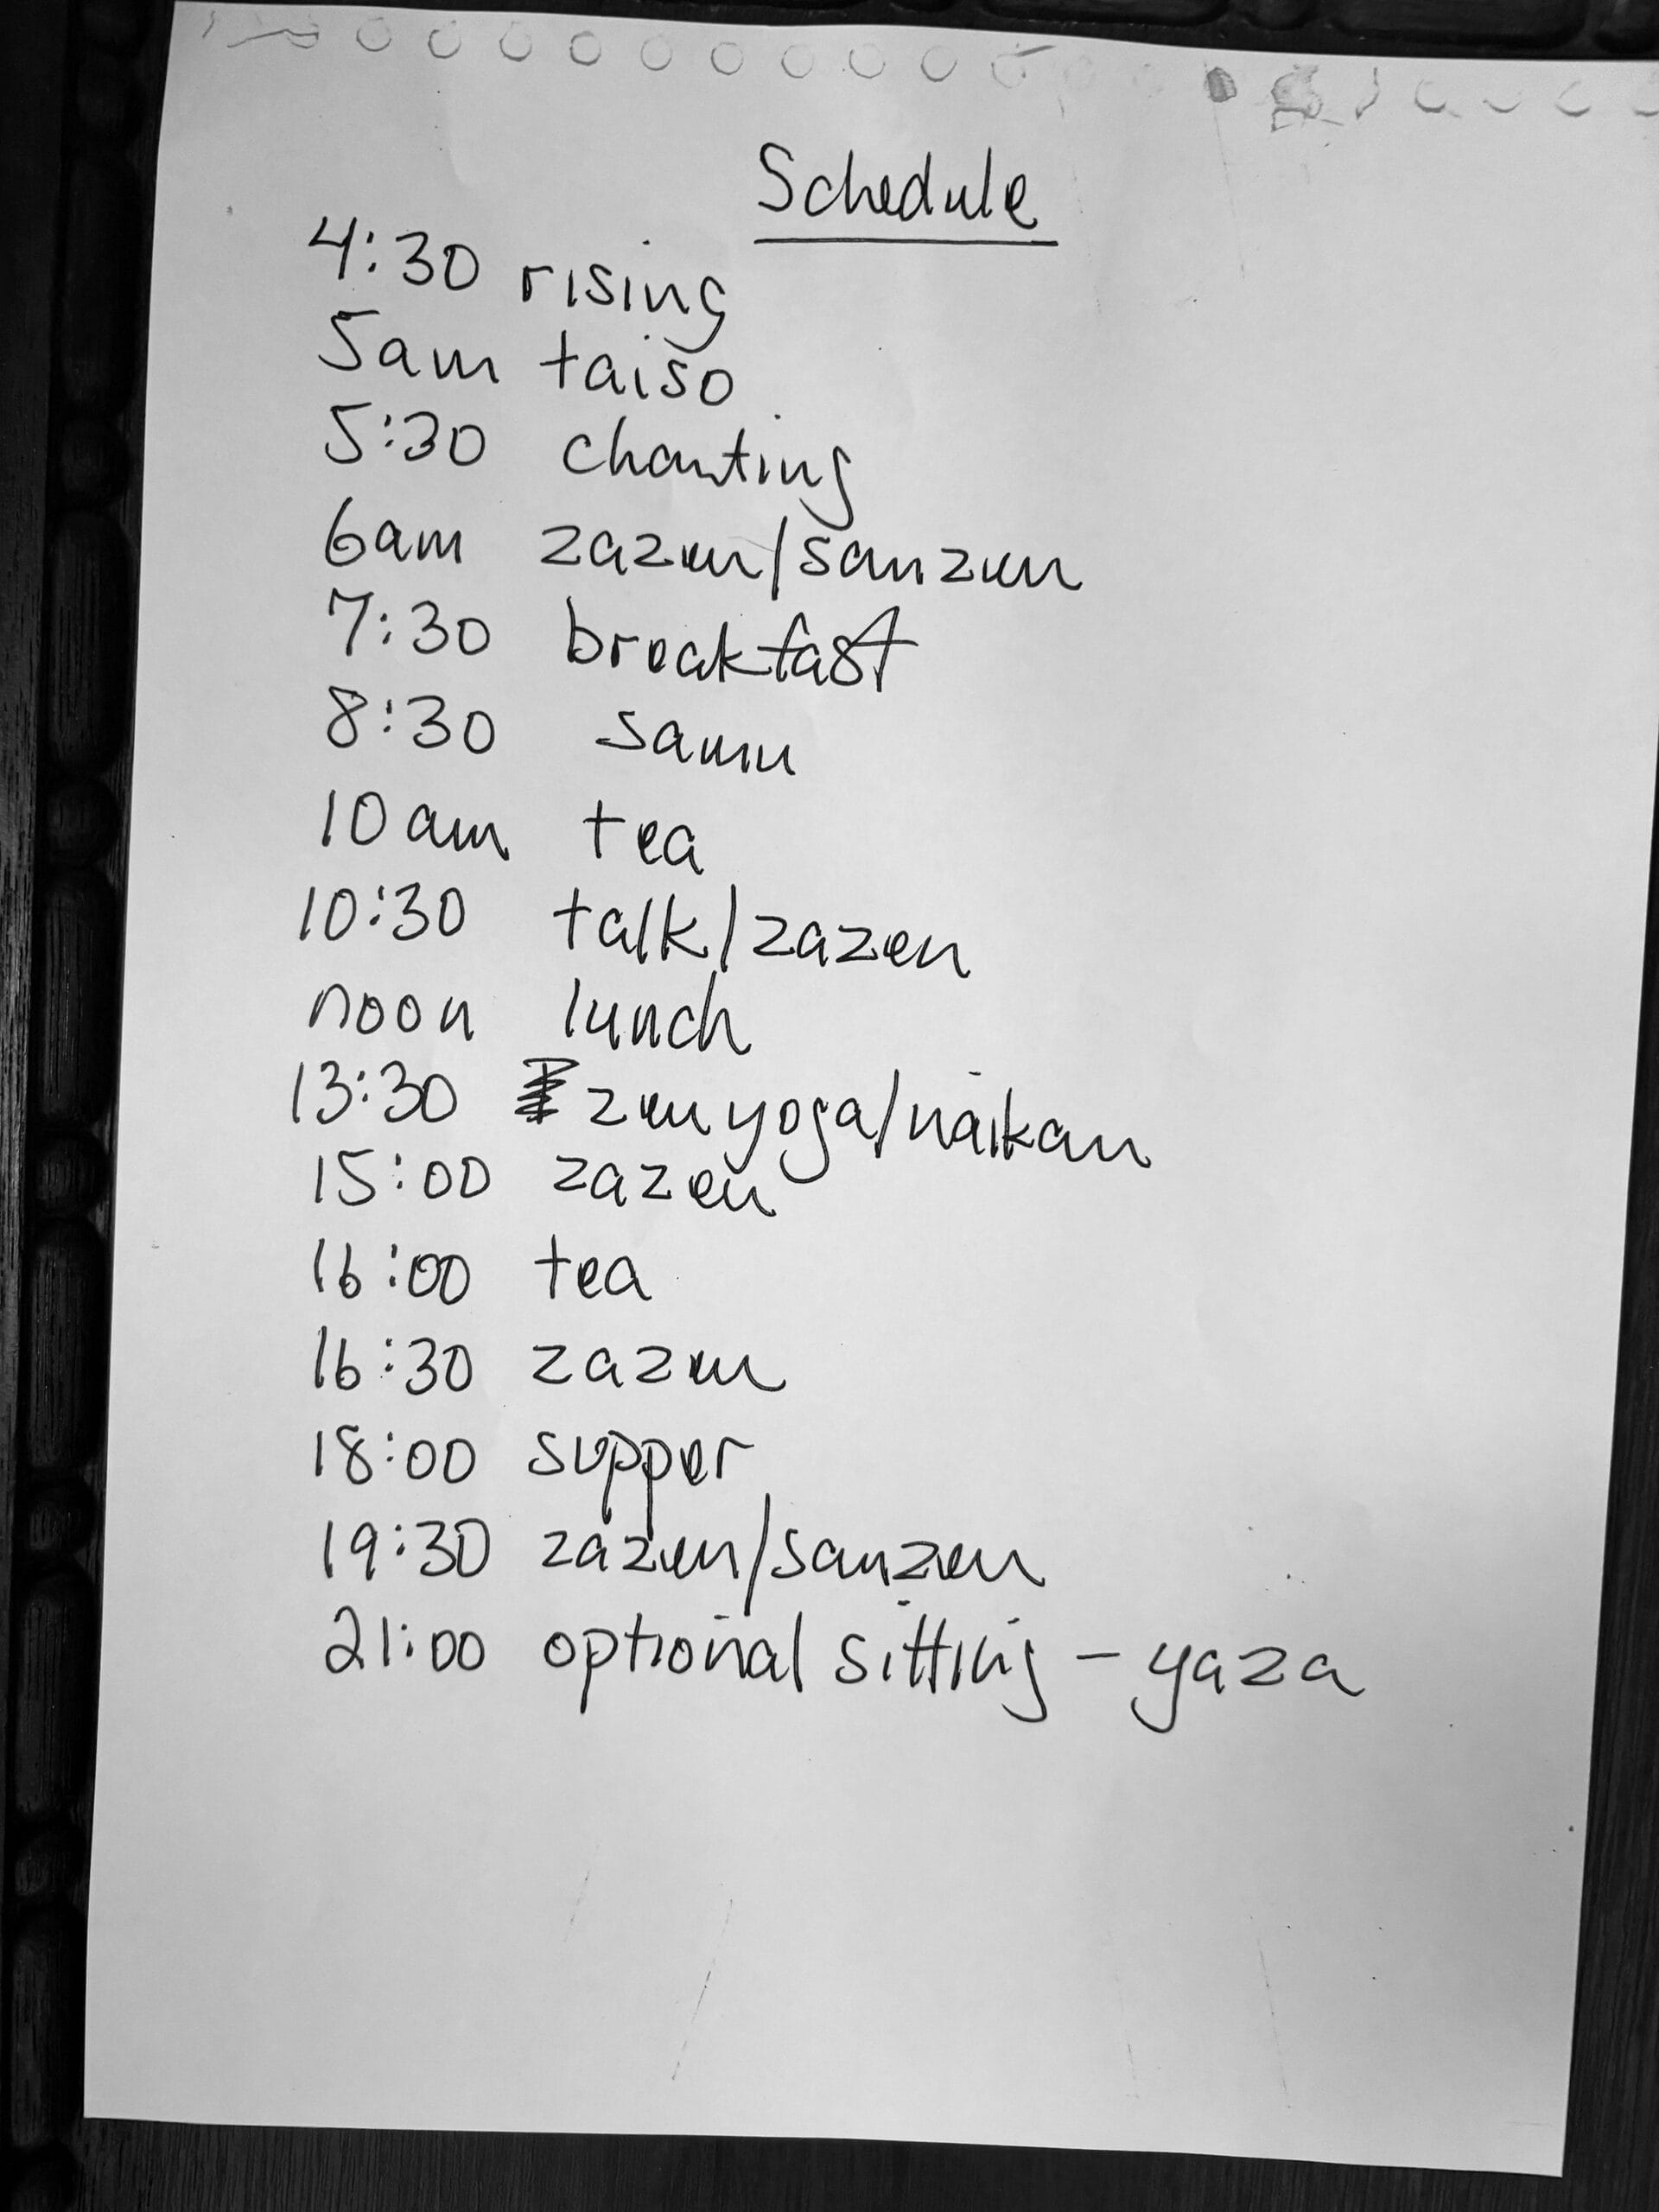 Schedule
4:30 rising
5am taiso
5:30 chanting
6am zazen/sanzen
7:30 breakfast
8:30 samu
10am tea
10:30 talk/zazen
noon lunch
13:30 zen yoga/naikan
15:00 zazen
16:00 tea
16:30 zazen
18:00 supper
19:30 zazen/sanzen
21:00 optional sitting - yaza